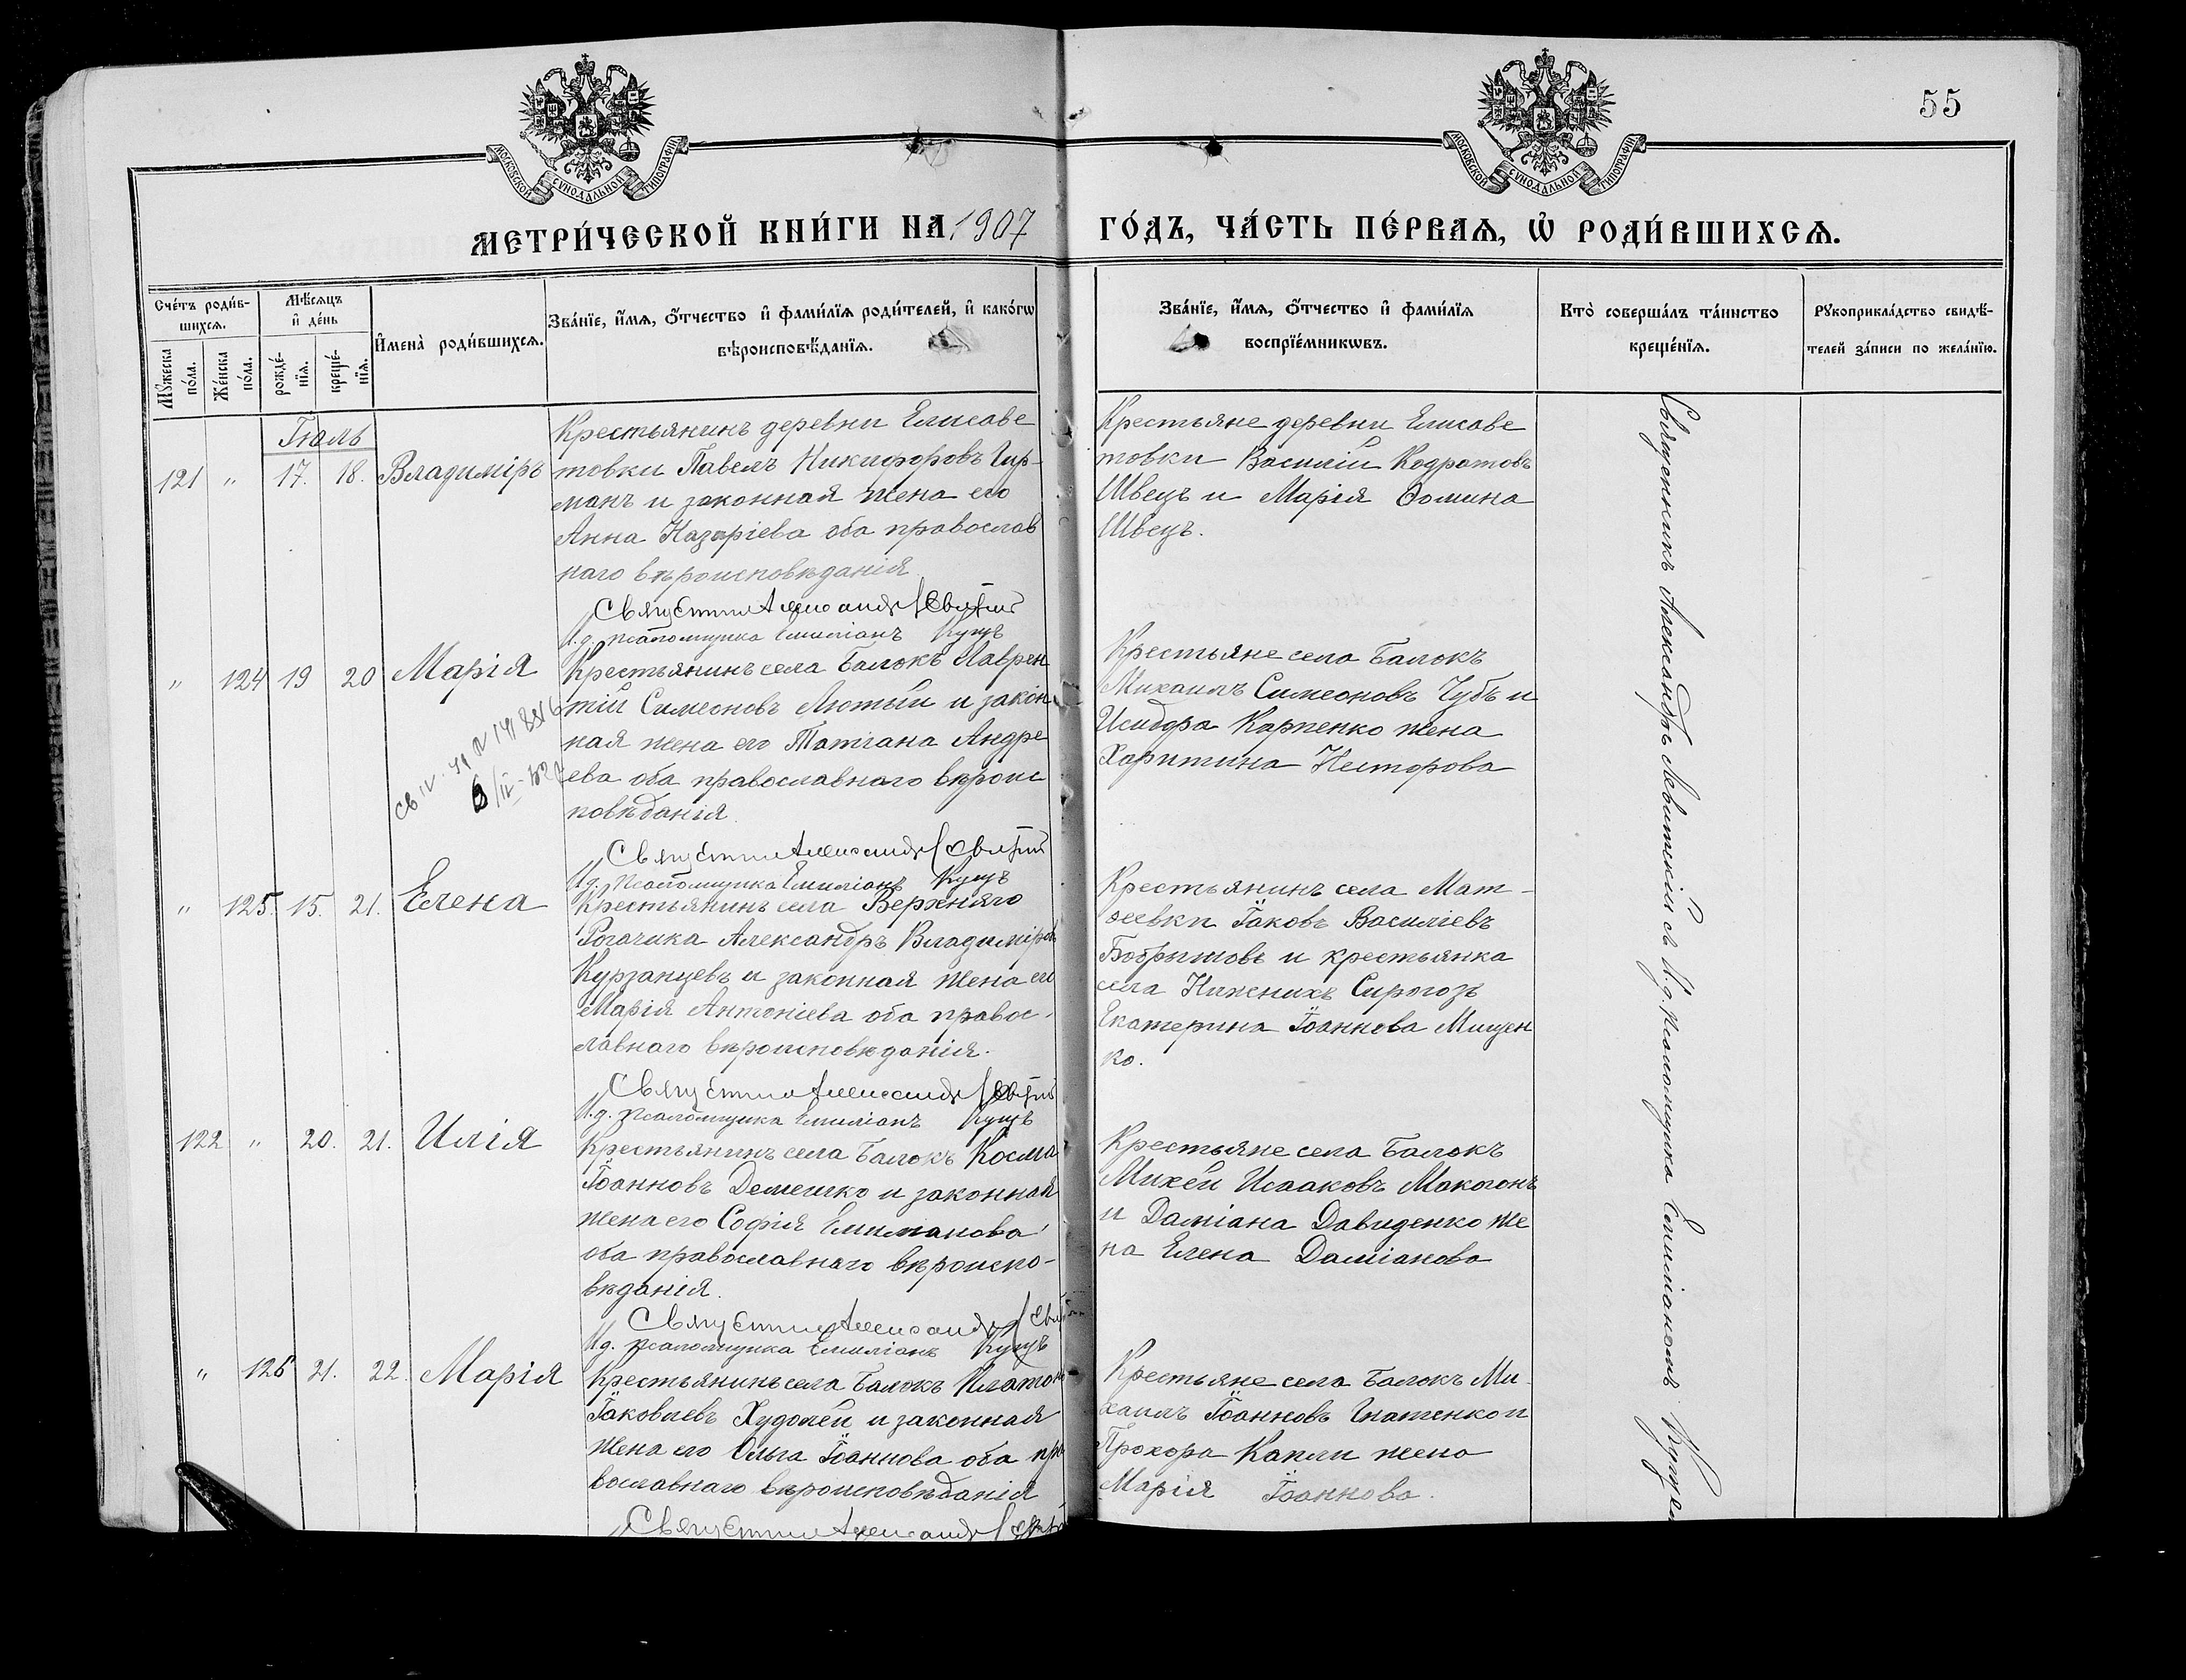 55
МОСКОВСКОЙ СѴНОДАЛЬНОЙ ТИПОГРАФІИ
МОСКОВСКОЙ СѴНОДАЛЬНОЙ ТИПОГРАФІИ
МЕТРИ́ЧЕСКОЙ КНИ́ГИ НА 1907 ГО́ДЪ, ЧА́СТЬ ПЕ́РВАѦ, Ѡ҆ РОДИ́ВШИХСѦ.
Сче́тъ роди́в-
шихсѧ.
Мꙋ́жеска по́ла.
Же́нска по́ла.
Мѣ́сѧцъ
и҆ де́нь
рожде́-
нїѧ.
креще́-
нїѧ.
И҆мена̀ роди́вшихсѧ.
Зва́нїе, и҆́мѧ, ѻ҆́тчество и҆ фами́лїѧ роди́телей, и҆ како́гѡ
вѣроисповѣ́данїѧ.
Зва́нїе, и҆́мѧ, ѻ҆́тчество и҆ фами́лїѧ
воспрїе́мникѡвъ.
Кто̀ соверша́лъ та́инство
креще́нїѧ.
Рꙋкоприкла́дство свидѣ́-
телей за́писи по жела́нїю.
Іюль
121 " 17. 18. Владиміръ
Крестьянинъ деревни Елисаве
товки Павелъ Никифоровъ Гир-
манъ и законная жена его
Анна Назаріева оба православ
наго вѣроисповѣданія
Священникъ Александръ Левитскій
И.д. псаломщика Емиліанъ Куцъ
Крестьяне деревни Елисаве
товки Василій Кодратовъ
Швецъ и Марія Ѳомина
Швецъ.
" 124 19 20 Марія
Крестьянинъ села Балокъ Лаврен
тій Симеоновъ Лютый и закон
ная жена его Татіана Андре
ева оба православнаго вѣроис
повѣданія.
Священникъ Александръ Левитскій
И.д. псаломщика Емиліанъ Куцъ
Крестьяне села Балокъ
Михаилъ Симеоновъ Чубъ и
Исидора Карпенко жена
Харитина Несторова
" 125. 15. 21. Елена
Крестьянинъ села Верхняго
Рогачика Александръ Владиміровъ
Курзанцевъ и законная жена его
Марія Антоніева оба правос-
лавнаго вѣроисповѣданія.
Священникъ Александръ Левитскій
И.д. псаломщика Емиліанъ Куцъ
Крестьянинъ села Мат-
ѳеевки Іаковъ Василіевъ
и крестьянка
села Нижнихъ Сирогозъ
Екатерина Іоаннова Мищен
ко.
122 " 20. 21. Илія
Крестьянинъ села Балокъ Косма
Іоанновъ Демешко и законная
жена его Софія
оба православнаго вѣроиспо-
вѣданія.
Священникъ Александръ
И.д. псаломщика Емиліанъ Куцъ
Крестьяне села Балокъ
Михей Исааковъ Макогонъ
и Даміана Давиденко же
на Елена Даміанова
" 126 21. 22. Марія
Крестьянинъ села Балокъ Платонъ
Іаковлевъ Худолей и законная
жена его Ольга Іоаннова оба пра
вославнаго вѣроисповѣданія
Священникъ Александръ
Крестьяне села Балокъ Ми-
хаилъ Іоанновъ Игнатенко и
Прохора Капли жена
Марія Іоаннова.
Священникъ Александръ Левитскій съ И.д. псаломщика Емиліаномъ Куцемъ